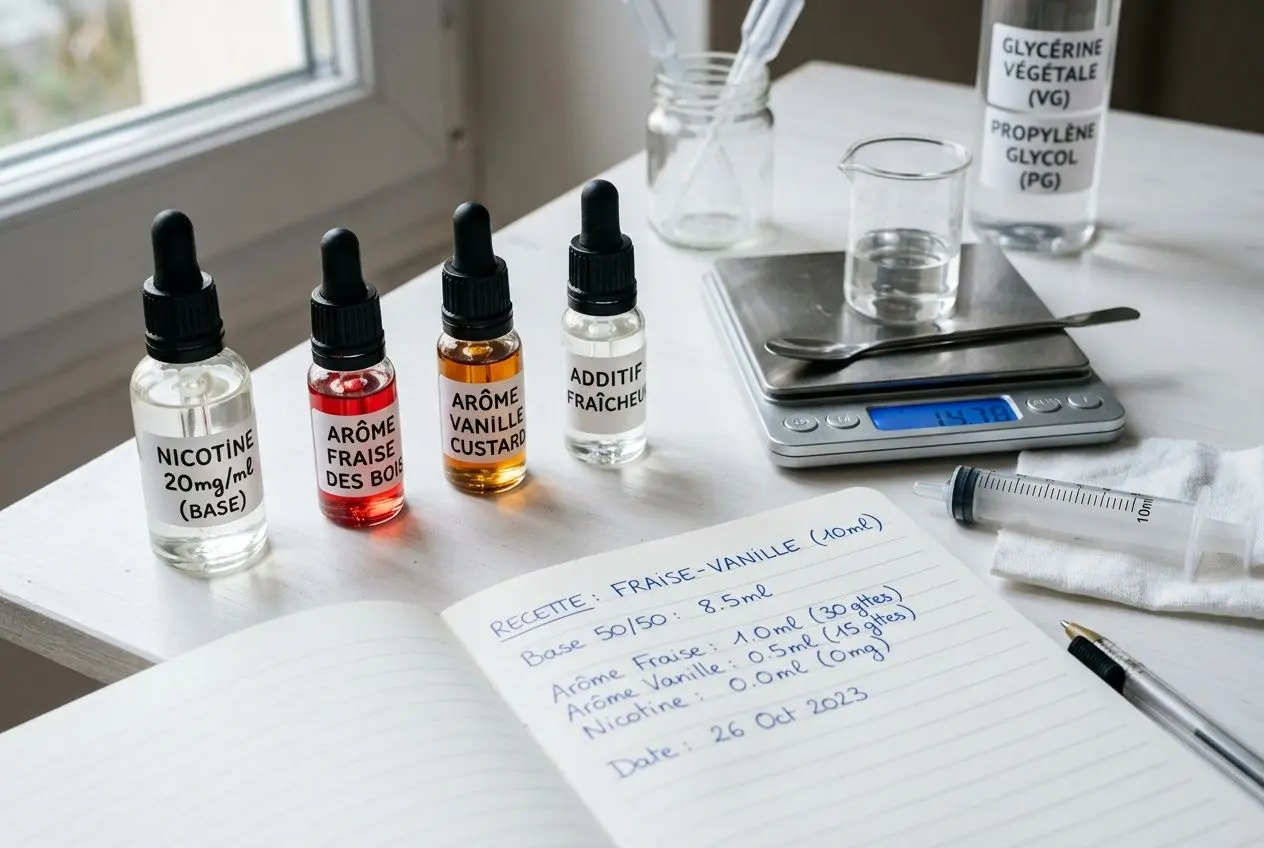 NICOTINE
20mg/ml
(BASE)
ARÔME
FRAISE
DES BOIS
ARÔME
VANILLE
CUSTARD
ADDITIF
FRAÎCHEUR
GLYCÉRINE
VÉGÉTALE
(VG)
PROPYLÈNE
GLYCOL
(PG)
14.78
10ml
RECETTE: FRAISE-VANILLE (10ml)
Base 50/50: 8.5ml
Arôme Fraise: 1.0ml (30 gttes)
Arôme Vanille: 0.5ml (15 gttes)
Nicotine: 0.0ml (0mg)
Date: 26 Oct 2023